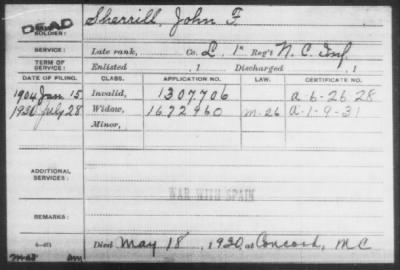 DEAD
SOLDIER: Sherrill, John F.
SERVICE: Late rank, Co. L, 1st Reg't N.C. Inf
TERM OF SERVICE: Enlisted , 1 Discharged , 1
DATE OF FILING. CLASS. APPLICATION NO. LAW. CERTIFICATE NO.
1904 Jan. 15 Invalid, 1307706 a-6-26-28
1930 July 28 Widow, 1672960 m-26 a-1-9-31
Minor,
ADDITIONAL SERVICES:
WAR WITH SPAIN
REMARKS:
Died May 18, 1930, at Concord, N.C.